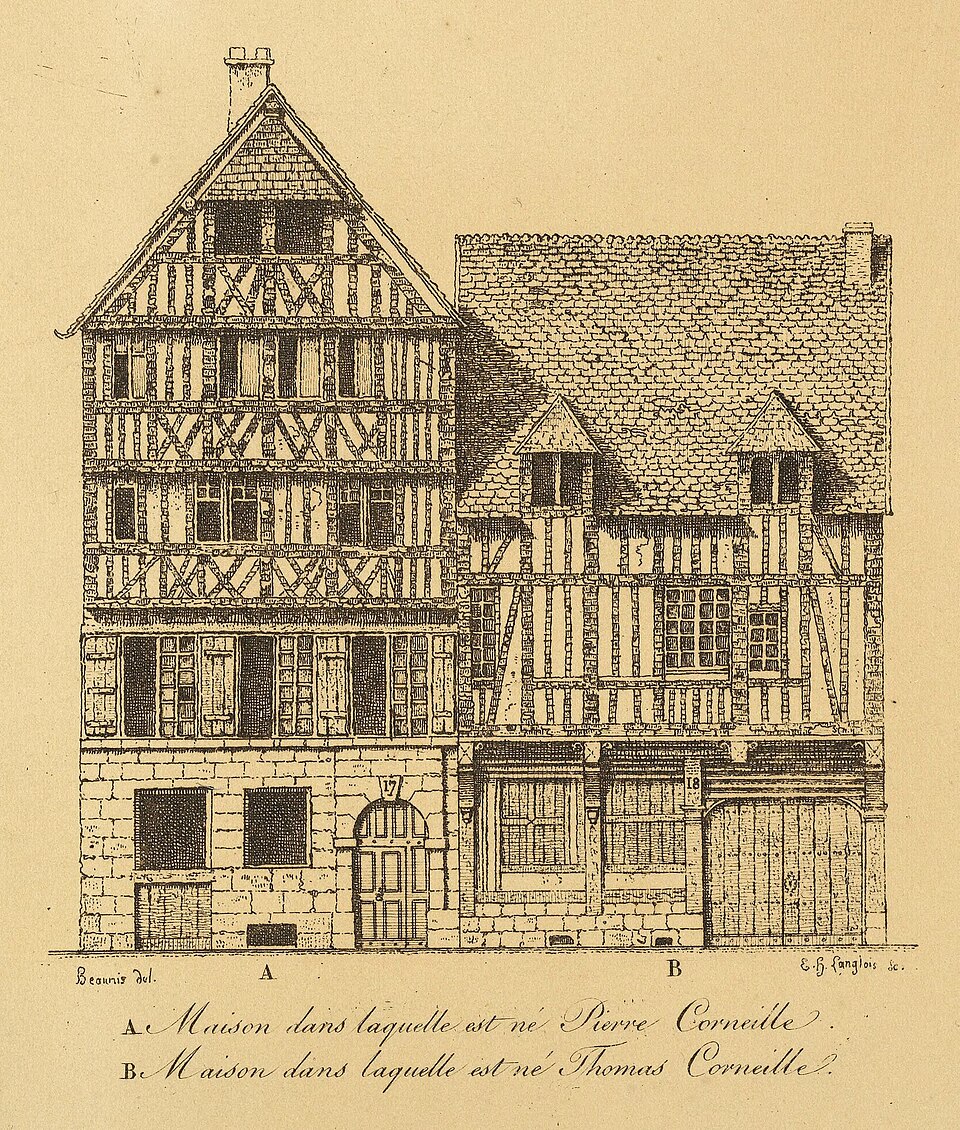 17
18
Beaunis del.
A
B
E. H. Langlois sc.
A Maison dans laquelle est né Pierre Corneille.
B. Maison dans laquelle est né Thomas Corneille.